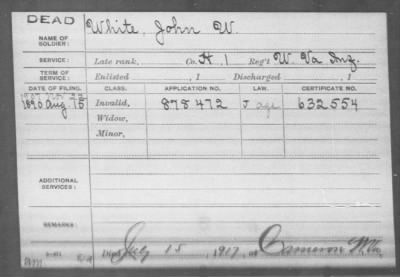 DEAD
NAME OF SOLDIER: White, John W.
SERVICE: Late rank, Co. H. 1 Reg't W. Va Inf.
TERM OF SERVICE: Enlisted , 1 Discharged , 1
DATE OF FILING. CLASS. APPLICATION NO. LAW. CERTIFICATE NO.
Aug. 75 Invalid, 878 472 J age 632 554
Widow,
Minor,
ADDITIONAL SERVICES:
REMARKS:
Died July 15, 1917, at Cameron W. Va.